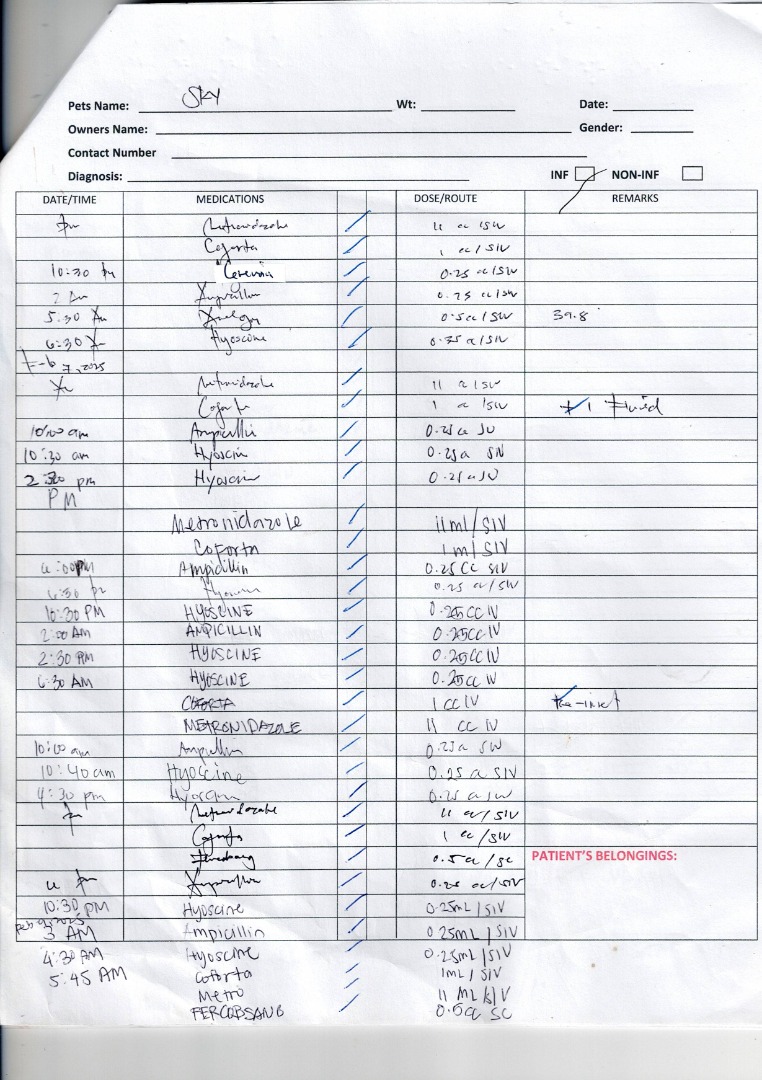 Pets Name: SKY Wt: Date:
Owners Name: Gender:
Contact Number
Diagnosis: INF NON-INF
DATE/TIME MEDICATIONS DOSE/ROUTE REMARKS
11 cc /SIV
Coforta 1 cc/SIV
10:30 pm Cerenia 0.25 cc/SIV
2 Am 0.25 cc/SIV
5:30 Am 0.5cc/SIV 39.8
6:30 Hyoscine 0.25 cc/SIV
Feb 7, 2025
11 cc/SIV
1 cc /SIV Fluid
10:00 am Ampicillin 0.25cc
10:30 am Hyoscin 0.25cc SIV
2:30 pm Hyoscin 0.25cc
PM
Metronidazole 11ml/SIV
Coforta 1ml SIV
Ampicillin 0.25 CC SIV
6:30 pm 0.25 cc/SIV
10:30 PM HYOSCINE 0.25CC IV
2:00 AM AMPICILLIN 0.25CC IV
2:30 AM HYOSCINE 0.25CC IV
6:30 AM HYOSCINE 0.25CC IV
COFORTA 1 CC IV
METRONIDAZOLE 11 CC IV
10:00 am Ampicillin 0.25cc SIV
10:40 am Hyoscine 0.25 cc SIV
4:30 pm 0.25 cc SIV
11 cc/SIV
1 cc/SIV
0.5cc/SC PATIENT'S BELONGINGS:
0.25 cc/SIV
10:30 PM Hyoscine 0.25mL/SIV
3 AM Ampicillin 0.25mL/SIV
4:30 AM Hyoscine 0.25mL/SIV
5:45 AM Coforta 1mL/SIV
Metro 11 ML SIV
FERCOBSANG 0.5cc SC